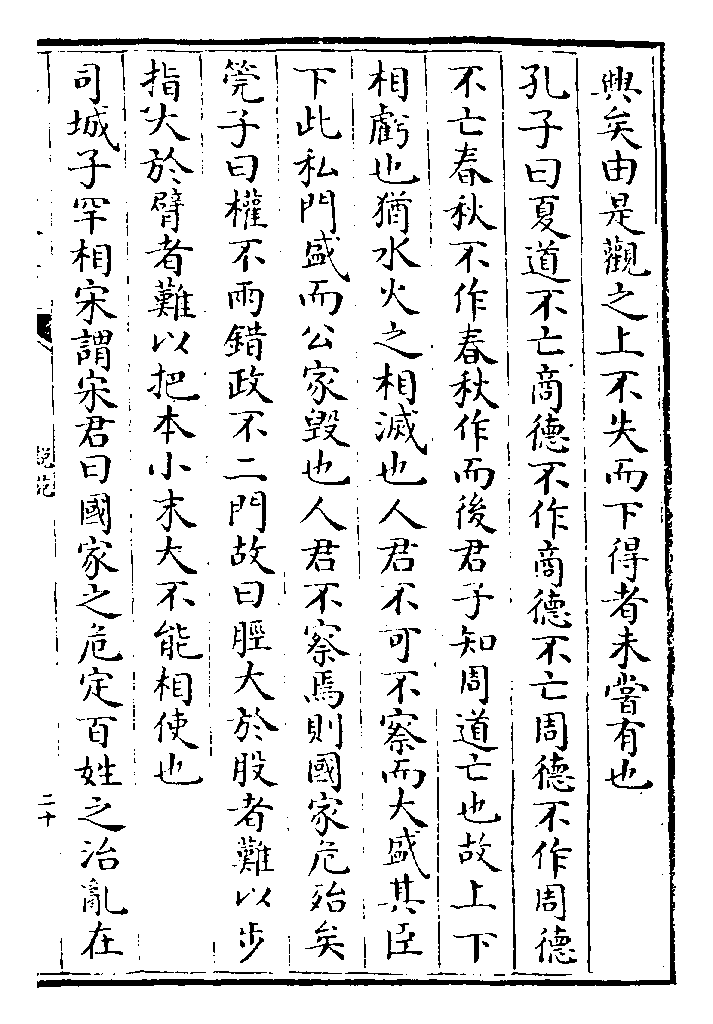 興矣由是觀之上不失而下得者未嘗有也
孔子曰夏道不亡商德不作商德不亡周德不作周德
不亡春秋不作春秋作而後君子知周道亡也故上下
相虧也猶水火之相滅也人君不可不察而大盛其臣
下此私門盛而公家毀也人君不察焉則國家危殆矣
筦子曰權不兩錯政不二門故曰脛大於股者難以步
指大於臂者難以把本小末大不能相使也
司城子罕相宋謂宋君曰國家之危定百姓之治亂在
說苑
二十